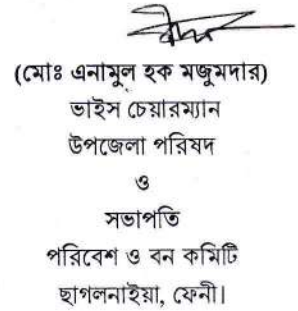 (মোঃ এনামুল হক মজুমদার)
ভাইস চেয়ারম্যান
উপজেলা পরিষদ
ও
সভাপতি
পরিবেশ ও বন কমিটি
ছাগলনাইয়া, ফেনী।